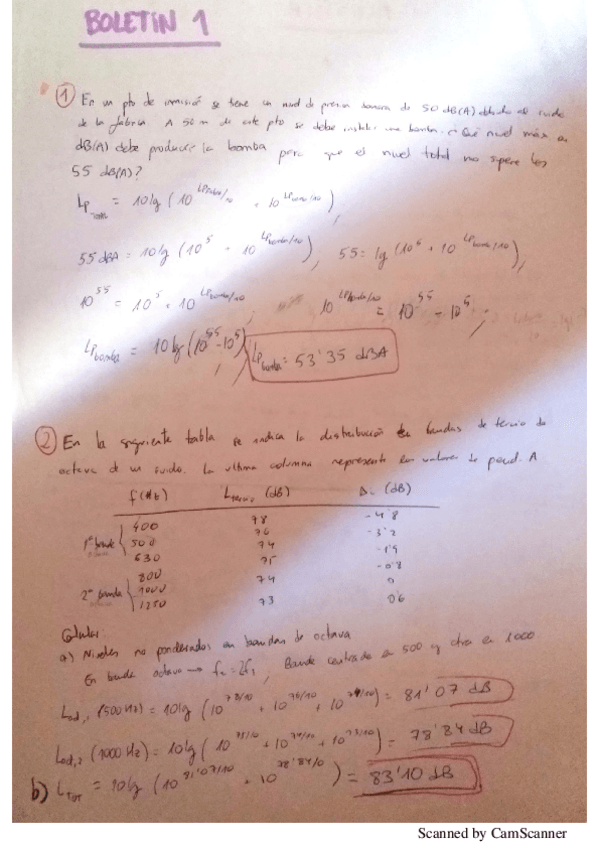 BOLETÍN 1
① En un pto de inmisión se tiene un nivel de presión sonora de 50 dB(A) debido al ruido
de la fábrica. A 50 m de este pto se debe instalar una bomba. ¿Qué nivel máx en
dB(A) debe producir la bomba para que el nivel total no supere los
55 dB(A)?
Lp = 10lg (10^(Lp/10) + 10^(Lp bomba/10))
55 dBA = 10lg (10^5 + 10^(Lp bomba/10)) , 5'5 = lg (10^5 + 10^(Lp bomba/10)) ,
10^5'5 = 10^5 + 10^(Lp bomba/10) , 10^(Lp bomba/10) = 10^5'5 - 10^5 ,
Lp bomba = 10lg (10^5'5 - 10^5) , Lp bomba = 53'35 dBA
② En la siguiente tabla se indica la distribución bandas de tercio de
octava de un ruido. La última columna representa los valores de pond. A
f(Hz) L tercio (dB) Δ (dB)
400 78 -4'8
1ª banda 500 76 -3'2
630 74 -1'9
800 75 -0'8
2ª banda 1000 74 0
1250 73 0'6
Calcular:
a) Niveles no ponderados en bandas de octava
En banda octava → f₂=2f₁ , Banda centrada a 500 y otra en 1000
Loct,1 (500Hz) = 10lg (10^(78/10) + 10^(76/10) + 10^(74/10)) = 81'07 dB
Loct,2 (1000 Hz) = 10lg (10^(75/10) + 10^(74/10) + 10^(73/10)) = 78'84 dB
b) L TOT = 10lg (10^(81'07/10) + 10^(78'84/10)) = 83'10 dB
Scanned by CamScanner